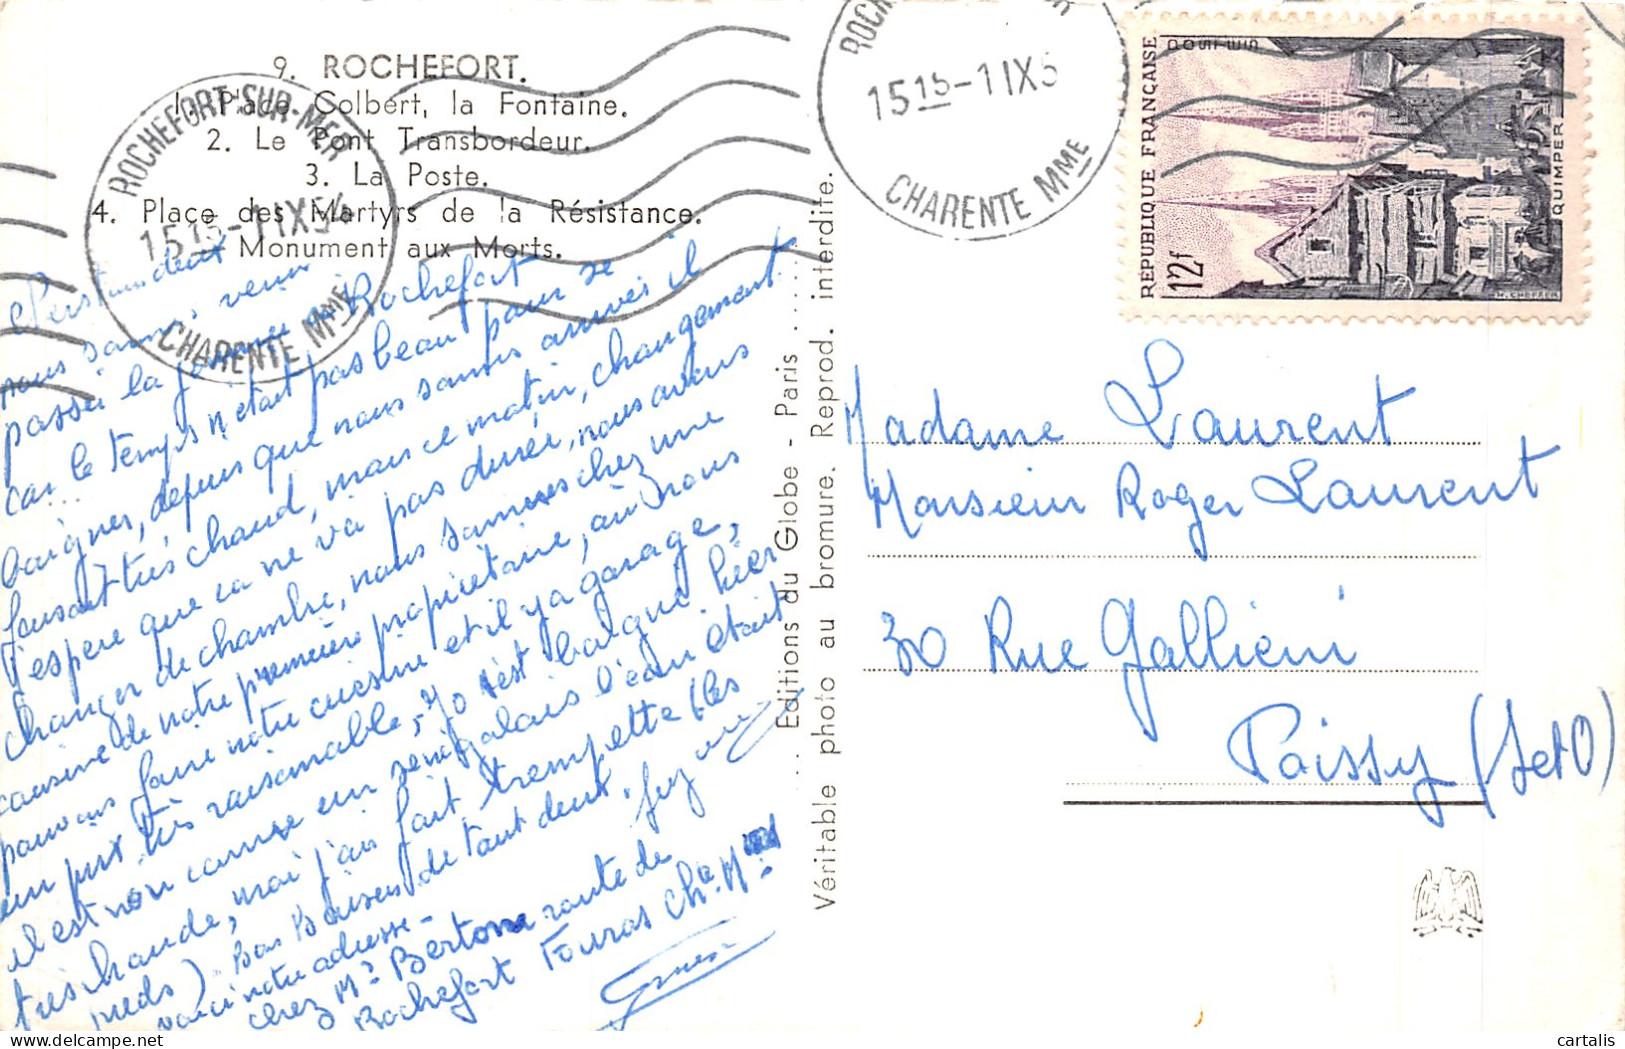 9. ROCHEFORT.
1. Place Colbert, la Fontaine.
2. Le Pont Transbordeur.
3. La Poste.
4. Place des Martyrs de la Résistance.
Monument aux Morts.
ROCHEFORT-SUR-MER
15 15 - 1 IX 54
CHARENTE MME
15 15 - 1 IX 5
CHARENTE MME
REPUBLIQUE FRANÇAISE
POSTES
12f
QUIMPER
nous sommes venu
passé la journée à Rochefort
car le temps n'était pas beau pour se
baigner, depuis que nous sommes arrivés il
faisait très chaud, mais ce matin, changement
j'espère que ça ne va pas durée, nous avons
changer de chambre, nous sommes chez une
cousine de notre première propriétaire, où nous
pouvons faire notre cuisine et il y a garage,
un prix très raisonable, Jo s'est baigné hier
il est noir comme un sénégalais l'eau était
très chaude, moi j'ai fait trempette (les
pieds). Bons Baisers de tout deux.
voici notre adresse -
chez Mr Bertom route de
Rochefort Fouras Chte Mme
Editions du Globe - Paris
Véritable photo au bromure. Reprod. interdite.
Madame Laurent
Monsieur Roger Laurent
30 Rue Gallieni
Poissy (S et O)
cartalis